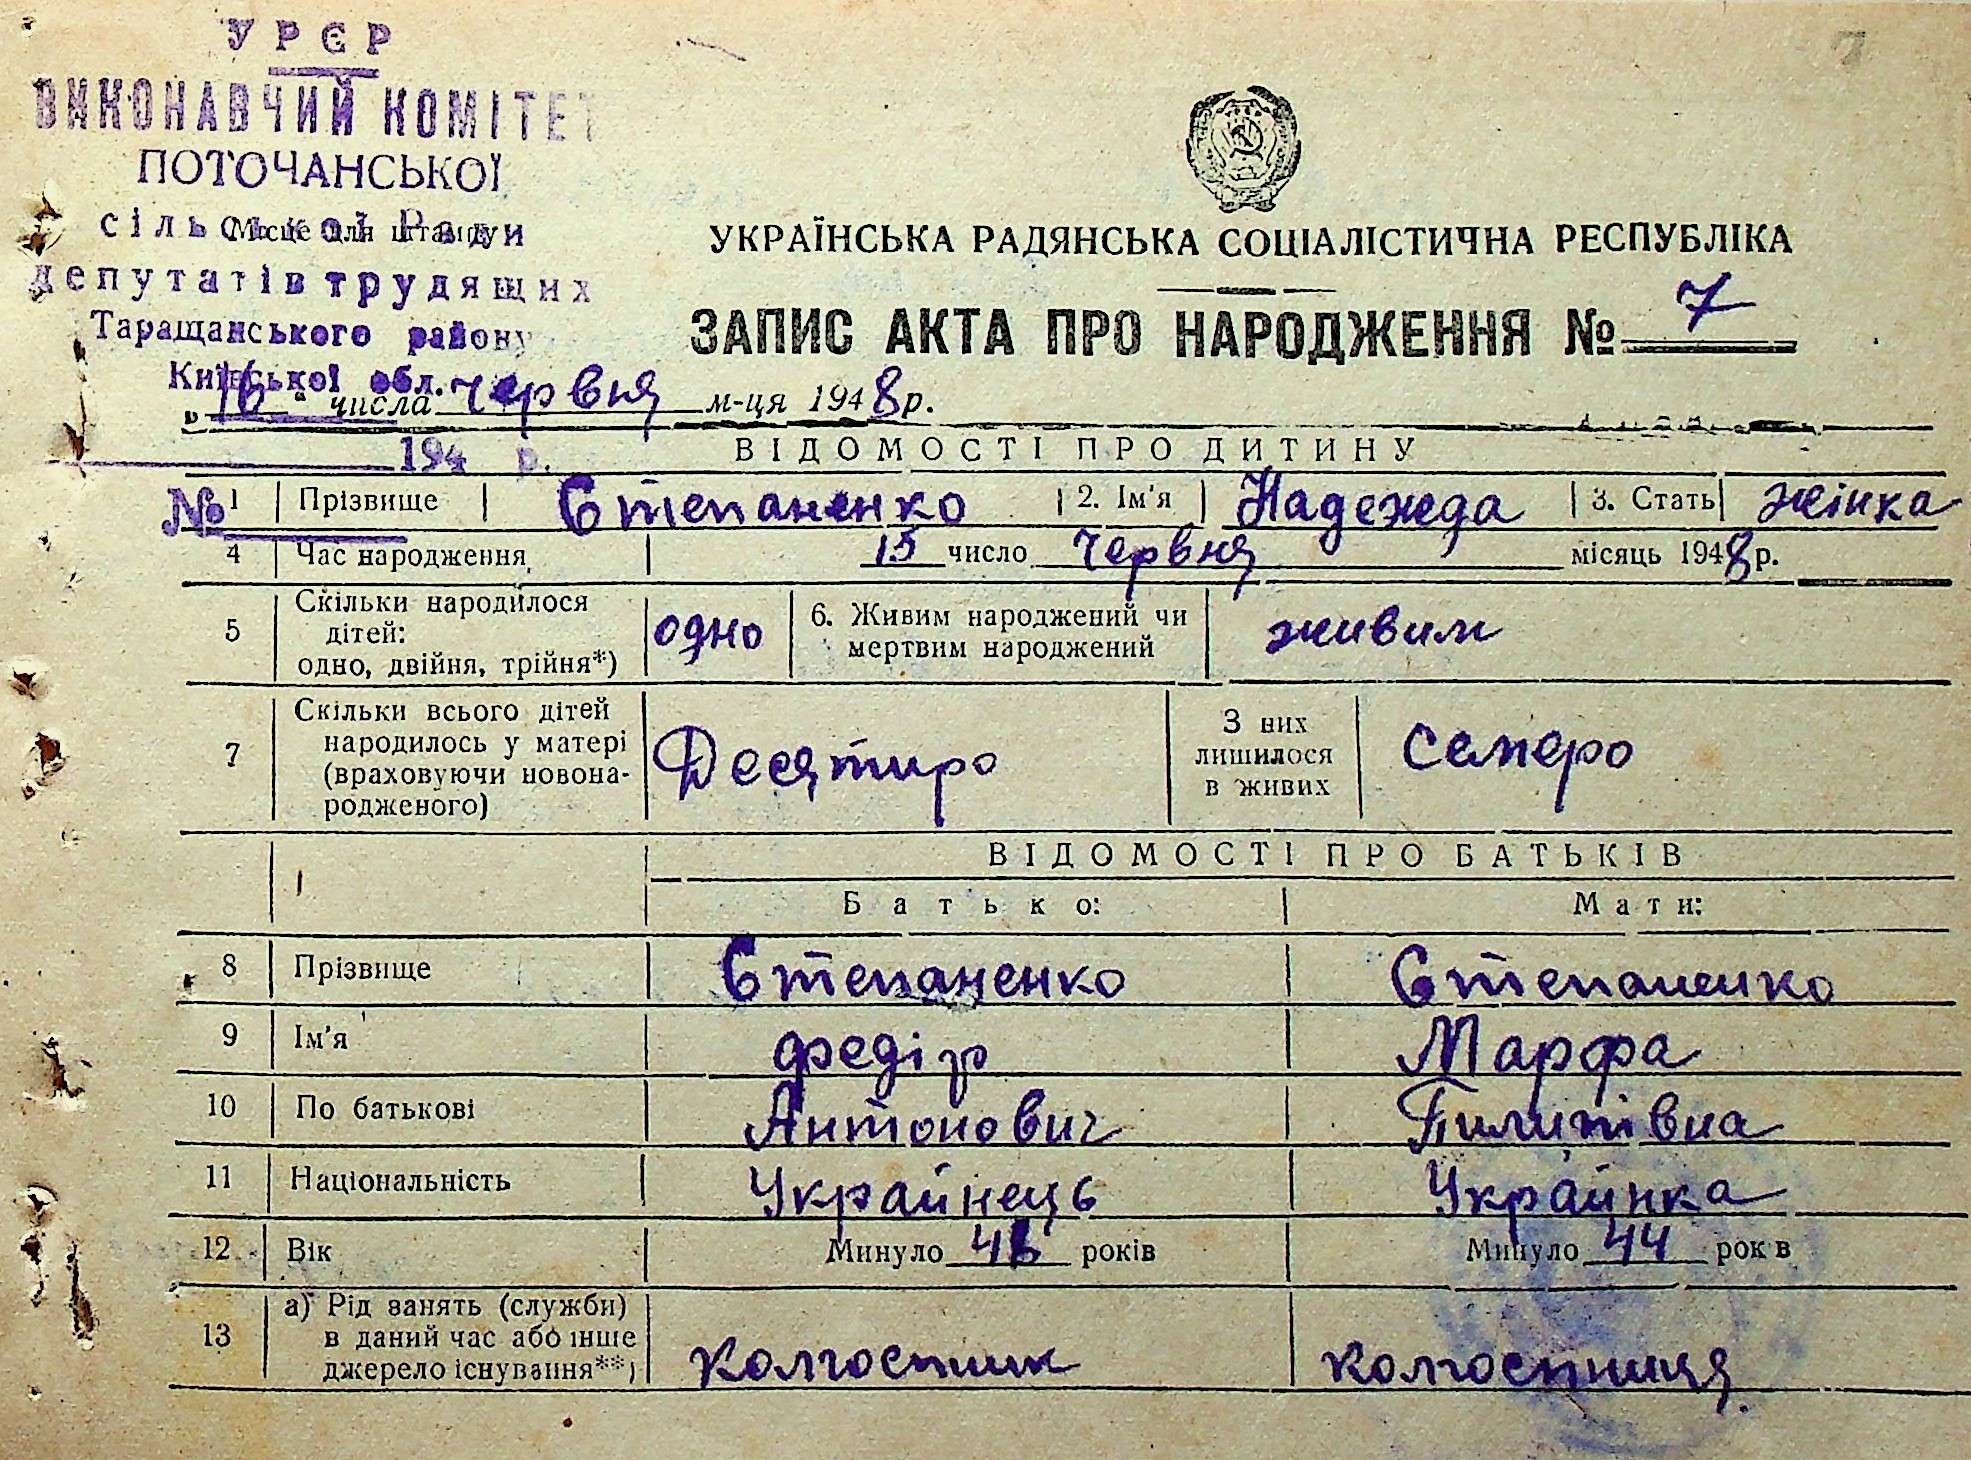 УРЄР
ВИКОНАВЧИЙ КОМІТЕТ
ПОТОЧАНСЬКОЇ
сільської Ради
Місце для штампу
депутатів трудящих
Таращанського району
Київської обл.
194 р.
№
7
УКРАЇНСЬКА РАДЯНСЬКА СОЦІАЛІСТИЧНА РЕСПУБЛІКА
ЗАПИС АКТА ПРО НАРОДЖЕННЯ № 7
„16“ числа червня м-ця 1948р.
ВІДОМОСТІ ПРО ДИТИНУ
1 Прізвище Степаненко 2. Ім'я Надежда 3. Стать жінка
4 Час народження 15 число червня місяць 1948р.
5 Скільки народилося дітей: одно, двійня, трійня*) одно 6. Живим народжений чи мертвим народжений живим
7 Скільки всього дітей народилось у матері (враховуючи новонародженого) Десятиро З них лишилося в живих семеро
ВІДОМОСТІ ПРО БАТЬКІВ
Батько: Мати:
8 Прізвище Степаненко Степаненко
9 Ім'я Федір Марфа
10 По батькові Антонович Пилипівна
11 Національність Українець Українка
12 Вік Минуло років Минуло 44 рок в
13 а) Рід занять (служби) в даний час або інше джерело існування**) колгоспник колгоспниця